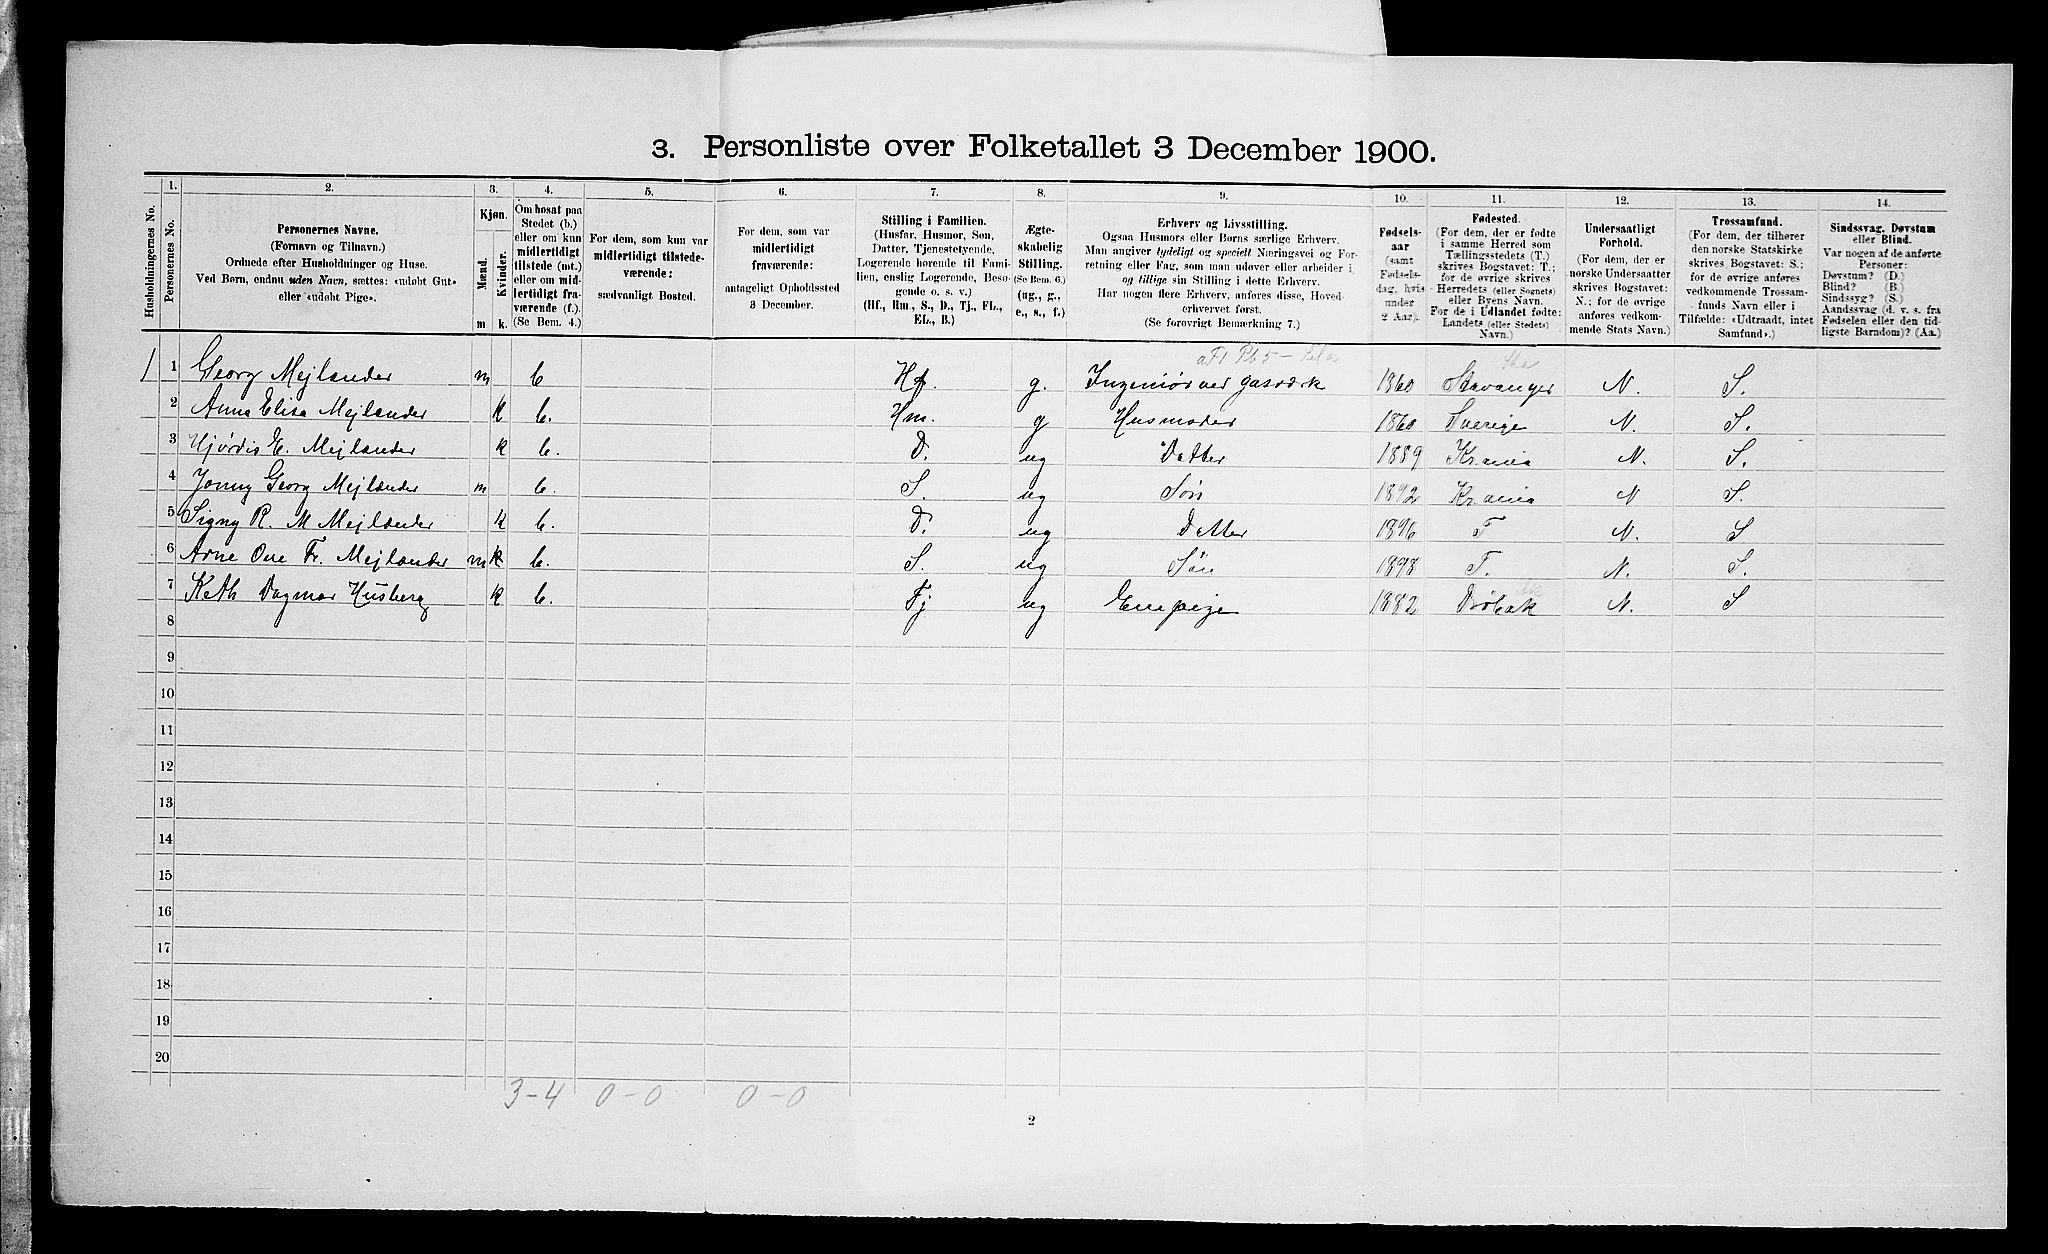 3. Personliste over Folketallet 3 December 1900.
Husholdningernes No.
1. Personernes No.
2. Personernes Navne. (Fornavn og Tilnavn.) Ordnede efter Husholdninger og Huse. Ved Børn, endnu uden Navn, sættes: «udøbt Gut» eller «udøbt Pige».
3. Kjøn. Mænd. m Kvinder. k.
4. Om bosat paa Stedet (b.) eller om kun midlertidigt tilstede (mt.) eller om midlertidigt fraværende (f.). (Se Bem. 4.)
5. For dem, som kun var midlertidigt tilstedeværende: sædvanligt Bosted.
6. For dem, som var midlertidigt fraværende: antageligt Opholdssted 3 December.
7. Stilling i Familien. (Husfar, Husmor, Søn, Datter, Tjenestetyende, Logerende hørende til Familien, enslig Logerende, Besøgende o. s. v.) (Hf., Hm., S., D., Tj., FL., EL., B.)
8. Ægteskabelig Stilling. (Se Bem. 6.) (ug., g., e., s., f.)
9. Erhverv og Livsstilling. Ogsaa Husmors eller Børns særlige Erhverv. Man angiver tydeligt og specielt Næringsvei og Forretning eller Fag, som man udøver eller arbeider i, og tillige sin Stilling i dette Erhverv. Har nogen flere Erhverv, anføres disse, Hovederhvervet først. (Se forøvrigt Bemærkning 7.)
10. Fødselsaar (samt Fødselsdag, hvis under 2 Aar).
11. Fødested. (For dem, der er fødte i samme Herred som Tællingsstedets (T.) skrives Bogstavet: T.; for de øvrige skrives Herredets (eller Sognets) eller Byens Navn. For de i Udlandet fødte: Landets (eller Stedets) Navn.)
12. Undersaatligt Forhold. (For dem, der er norske Undersaatter skrives Bogstavet: N.; for de øvrige anføres vedkommende Stats Navn.)
13. Trossamfund. (For dem, der tilhører den norske Statskirke skrives Bogstavet: S.; for de øvrige anføres vedkommende Trossamfunds Navn eller i Tilfælde: «Udtraadt, intet Samfund».)
14. Sindssvag, Døvstum eller Blind. Var nogen af de anførte Personer: Døvstum? (D.) Blind? (B.) Sindssyg? (S.) Aandssvag (d. v. s. fra Fødselen eller den tidligste Barndom)? (Aa.)
1 1 Georg Mejlænder m b Hf. g. Ingeniør ved gasværk 1860 Stavanger N. S.
2 Anna Elisa Mejlænder k b. Hm. g Husmoder 1860 Sverige N. S.
3 Hjørdis E. Mejlænder k b. D. ug Datter 1889 Krania N. S.
4 Jonny Georg Mejlænder m b. S. ug Søn 1892 Krania N S.
5 Signy R. M Mejlænder k b. D. ug Datter 1896 T N. S
6 Arne Ove Fr. Mejlænder m k b. S. ug Søn 1898 T. N. S.
7 Kath Dagmar Husberg k b. Tj ug Enepige 1882 Drøbak N. S
8
9
10
11
12
13
14
15
16
17
18
19
20
3-4 0-0 0-0
2